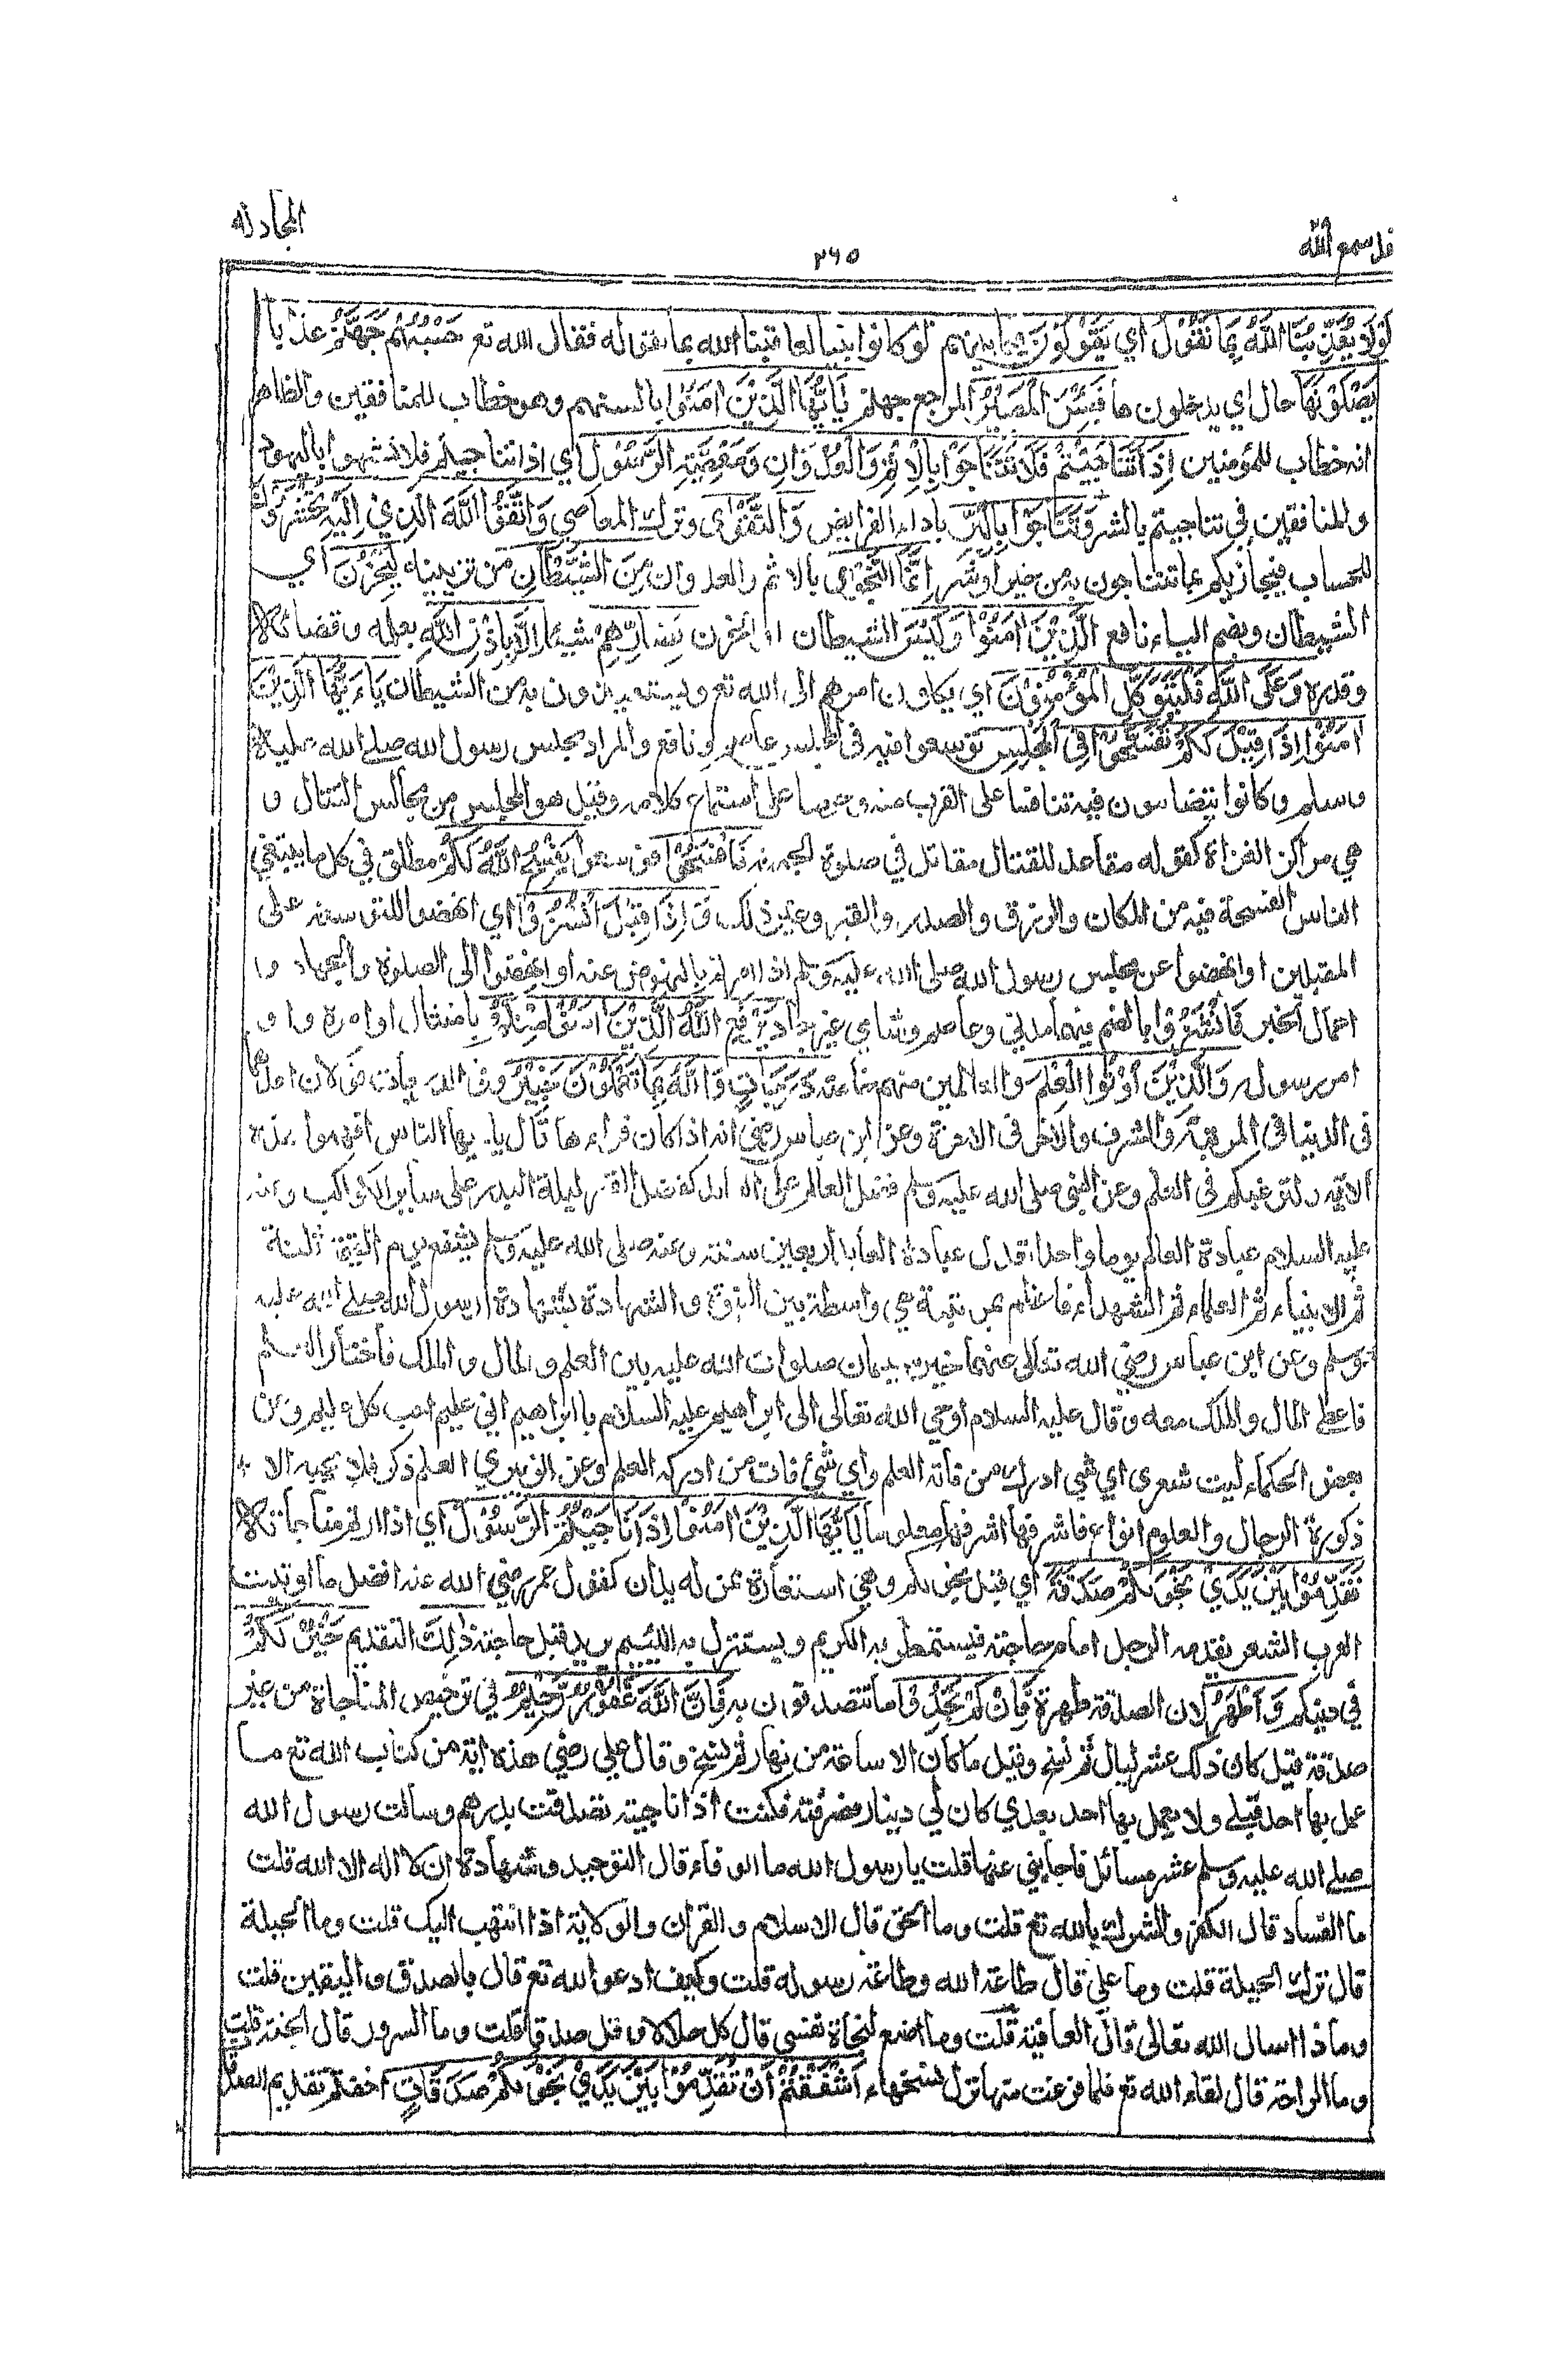 قد سمع الله
٢٦٥
المجادلة
لَوْلَا يُعَذِّبُنَا اللَّهُ بِمَا نَقُوْلُ اي يَقُوْلُوْنَ فيما بينهم لو كانوا نبيا لعاقبنا الله بما نقوله فقال الله تع حَسْبُهُمْ جَهَنَّمُ عذابا
يَصْلَوْنَهَا حال اي يدخلون ها فَبِئْسَ الْمَصِيْرُ المراجع جهنم يَاَيُّهَا الَّذِيْنَ اٰمَنُوْا بالسنتهم وهو خطاب للمنافقين والظاهر
انه خطاب للمؤمنين اِذَا تَنَاجَيْتُمْ فَلَا تَتَنَاجَوْا بِالْاِثْمِ وَالْعُدْوَانِ وَمَعْصِيَتِ الرَّسُوْلِ اي اذا تناجيتم فلا تشبهوا باليهود
وللمنافقين في تناجيتم بالشر وَتَنَاجَوْا بِالْبِرِّ باداء الفرايض وَالتَّقْوٰى وترك المعاصي وَاتَّقُوا اللَّهَ الَّذِيْ اِلَيْهِ تُحْشَرُوْنَ
للحساب فيجازيكم بما تتناجون به من خير او شر اِنَّمَا النَّجْوٰى بالاثم والعدوان مِنَ الشَّيْطَانِ من تزيينه لِيَحْزُنَ اي
الشيطان وبضم الياء نافع الَّذِيْنَ اٰمَنُوْا وَلَيْسَ الشيطان او الحزن بِضَارِّهِمْ شَيْئًا اِلَّا بِاِذْنِ اللَّهِ بعلمه وقضائه
وقدره وَعَلَى اللَّهِ فَلْيَتَوَكَّلِ الْمُؤْمِنُوْنَ اي يكلون امرهم الى الله تع ويستعيذون به من الشيطان يَاءَيُّهَا الَّذِيْنَ
اٰمَنُوْا اِذَا قِيْلَ لَكُمْ تَفَسَّحُوْا فِي الْمَجٰلِسِ توسعوا فيه في المجلس عاصم ونافع والمراد مجلس رسول الله صلے الله عليه
وسلم وكانوا يتضامون فيه تنافسا على القرب منه وحرصا على استماع كلامه وقيل هو المجلس من مجالس القتال و
هي مراكز الغزاة كقوله مقاعد للقتال مقاتل في صلوة الجمعة فَافْسَحُوْا فوسعوا يَفْسَحِ اللَّهُ لَكُمْ مطلق في كل ما يبتغي
الناس الفسحة فيه من المكان والرزق والصدر والقبر وغير ذلك وَاِذَا قِيْلَ انْشُزُوْا اي انهضوا للتوسعة على
المقبلين او انهضوا عن مجلس رسول الله صلى الله عليه وسلم اذا امرتم بالنهوض عنه او انهضوا الى الصلوة والجهاد وا
اعمال الخير فَانْشُزُوْا بالضم فيهما مدني وعاصم وشامي غير حماد يَرْفَعِ اللَّهُ الَّذِيْنَ اٰمَنُوْا مِنْكُمْ بامتثال اوامره وا و
امر رسوله وَالَّذِيْنَ اُوْتُوا الْعِلْمَ والعالمين منهم خاصة دَرَجَاتٍ وَاللَّهُ بِمَا تَعْمَلُوْنَ خَبِيْرٌ
في الدنيا في المرتبة والشرف والاخر في الاخرة وعن ابن عباس رضي انه اذا كان قراءها قال يا يها الناس افهموا هذه
الآية ولترغبكم في العلم وعن النبي صلى الله عليه وسلم فضل العالم على العابد كفضل القمر ليلة البدر على سائر الكواكب وعنه
عليه السلام عبادة العالم يوما واحدا تعدل عبادة العابد اربعين سنة وعنه صلى الله عليه وسلم يشفع يوم القيمة ثلثة
الانبياء ثم العلماء ثم الشهداء فاعظم بمرتبة هي واسطة بين النبوة والشهادة بشهادة رسول الله صلے الله عليه
وسلم وعن ابن عباس رضي الله تعالى عنهما خير سليمان صلوات الله عليه بين العلم والمال والملك فاختار العلم
فاعطي المال والملك معه وقال عليه السلام اوحي الله تعالى الى ابراهيم عليه السلام يا ابراهيم اني عليم احب كل عليم وعن
بعض الحكماء ليت شعرى اي شي ادرك من فاته العلم واي شئ فات من ادركه العلم وعن الزبيري العلم ذكر فلا يحبه الا
ذكورة الرجال والعلوم انواع فاشرفها اشرفها معلوما يَاَيُّهَا الَّذِيْنَ اٰمَنُوْا اِذَا نَاجَيْتُمُ الرَّسُوْلَ اي اذا اردتم مناجاته
فَقَدِّمُوْا بَيْنَ يَدَيْ نَجْوٰىكُمْ صَدَقَةً اي قبل نجوىكم وهي استعارة ممن له يدان كقول عمر رضي الله عنه افضل ما اوتيت
العرب الشعر يقدمه الرجل امام حاجته فيستمطر به الكريم ويستنزل به اللئيم يريد قبل حاجته ذٰلِكَ التقديم خَيْرٌ لَكُمْ
في دينكم وَاَطْهَرُ لان الصدقة طهرة فَاِنْ لَمْ تَجِدُوْا ما تتصدقون به فَاِنَّ اللَّهَ غَفُوْرٌ رَّحِيْمٌ في ترخيص المناجاة من غير
صدقة قيل كان ذلك عشر ليال ثم نسخ وقيل ما كان الا ساعة من نهار ثم نسخ وقال علي رضي هذه اية من كتاب الله تع ما
عمل بها احد قبلے ولا يعمل بها احد بعدي كان لي دينار فصرفته فكنت اذا ناجيته تصدقت بدرهم وسألت رسول الله
صلے الله عليه وسلم عشر مسائل فاجابني عنها قلت يا رسول الله ما الوفاء قال التوحيد وشهادة ان لا اله الا الله قلت
ما الفساد قال الكفر والشرك بالله تع قلت وما الحق قال الاسلام والقران والولاية اذا انتهت اليك قلت وما الحيلة
قال ترك الحيلة قلت وما علي قال طاعة الله وطاعة رسوله قلت وكيف ادعو الله تع قال بالصدق واليقين قلت
وماذا اسال الله تعالى قال العافية قلت وما اصنع لنجاة نفسي قال كل حلالا وقل صدقا قلت وما السرور قال الجنة قلت
وما الراحة قال لقاء الله تع فلما فرغت منها نزل نسخها ءَاَشْفَقْتُمْ اَنْ تُقَدِّمُوْا بَيْنَ يَدَيْ نَجْوٰىكُمْ صَدَقَاتٍ اخفتم تقديم الصدقا